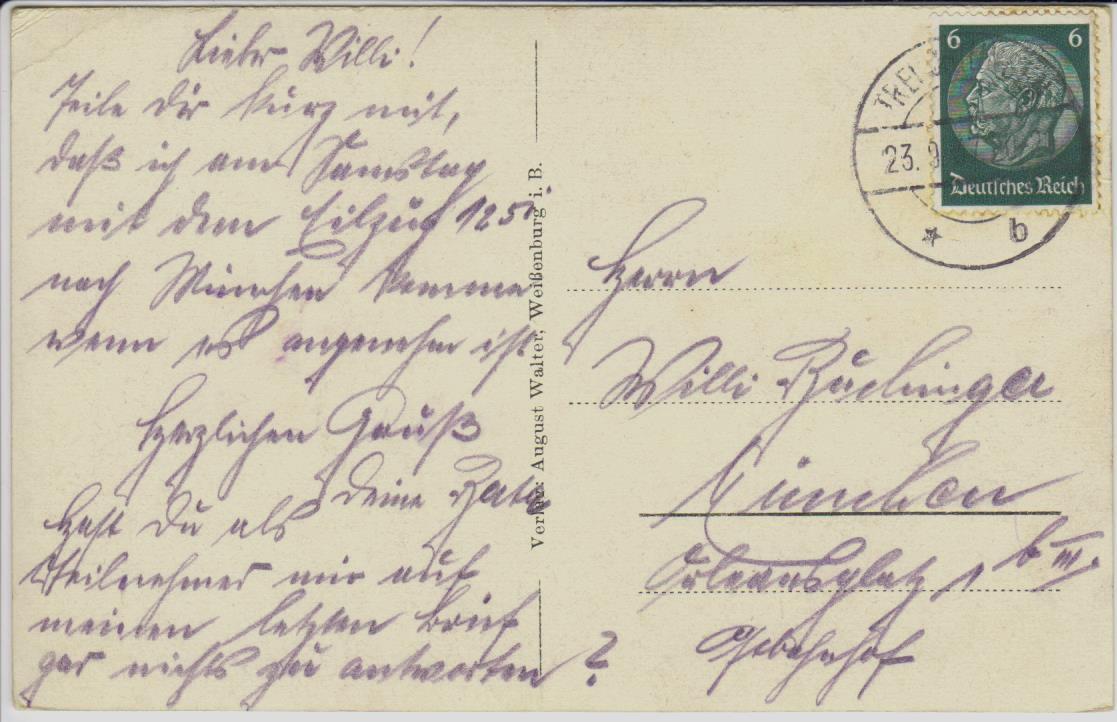 Lieber Willi!
Teile dir kurz mit,
daß ich am Samstag
mit dem Eilzug 125
nach München komme
wenn es angenehm ist
Herzlichen Gruß
deine
Hast du als
Teilnehmer mir auf
meinen letzten Brief
gar nichts zu antworten?
Verlag: August Walter, Weißenburg i. B.
6 6
Deutsches Reich
23. 9
b
Herrn
Willi
München
Orleansplatz